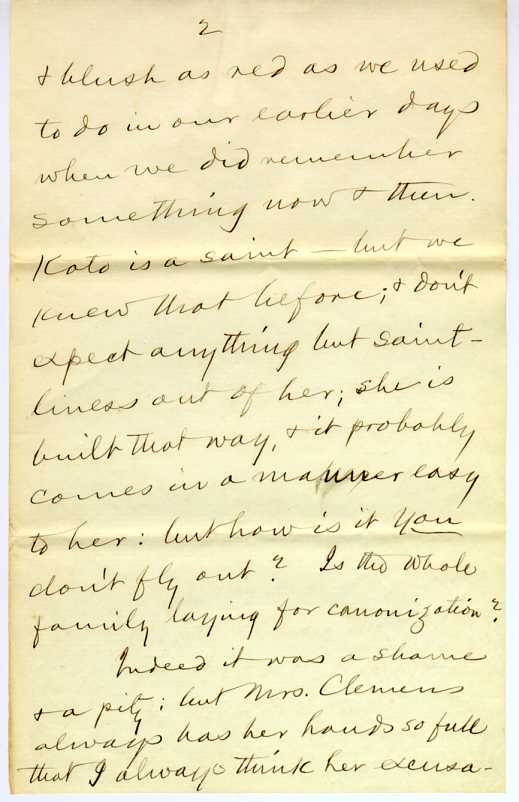 2
& blush as red as we used
to do in our earlier days
when we did remember
something now & then.
Kato is a saint — but we
knew that before; & don't
expect anything but saint-
liness out of her; she is
built that way, & it probably
comes in a manner easy
to her: but how is it you
don't fly out? Is the whole
family laying for canonization?
Indeed it was a shame
& a pity; but Mrs. Clemens
always has her hands so full
that I always think her excusa-